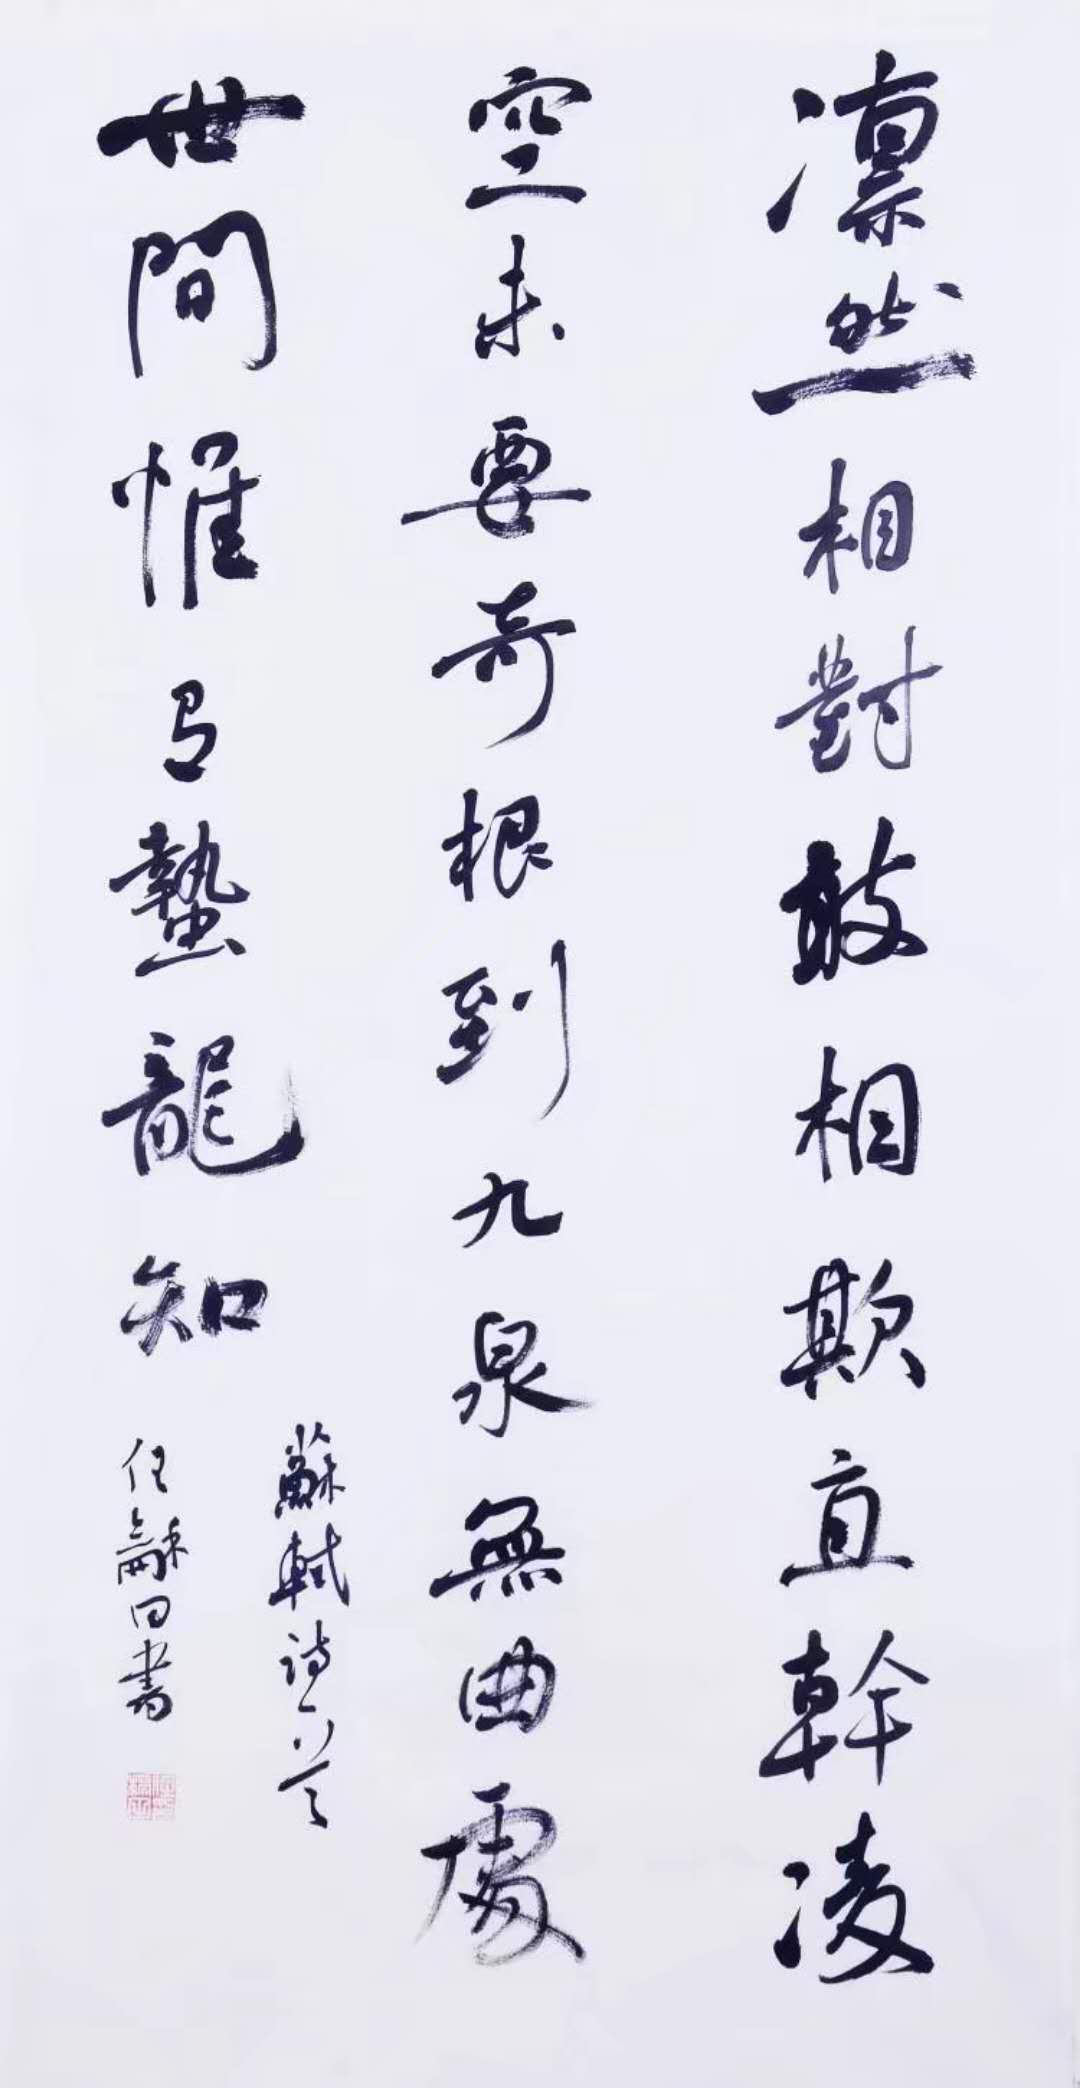 凛然相對敢相欺直幹凌
空未要奇根到九泉無曲處
世間惟有蟄龍知
蘇軾詩一首
任龢書